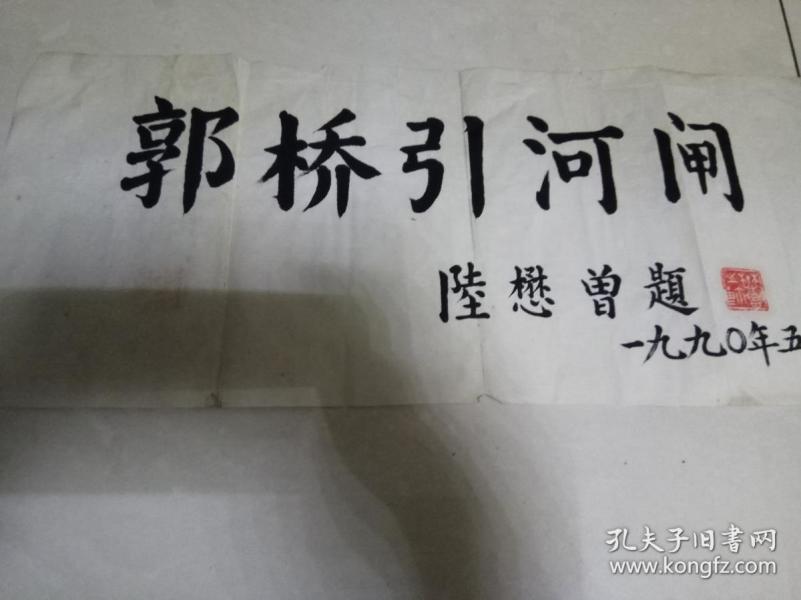 郭桥引河闸
陸懋曾題
一九九〇年五
孔夫子旧書网
www.kongfz.com